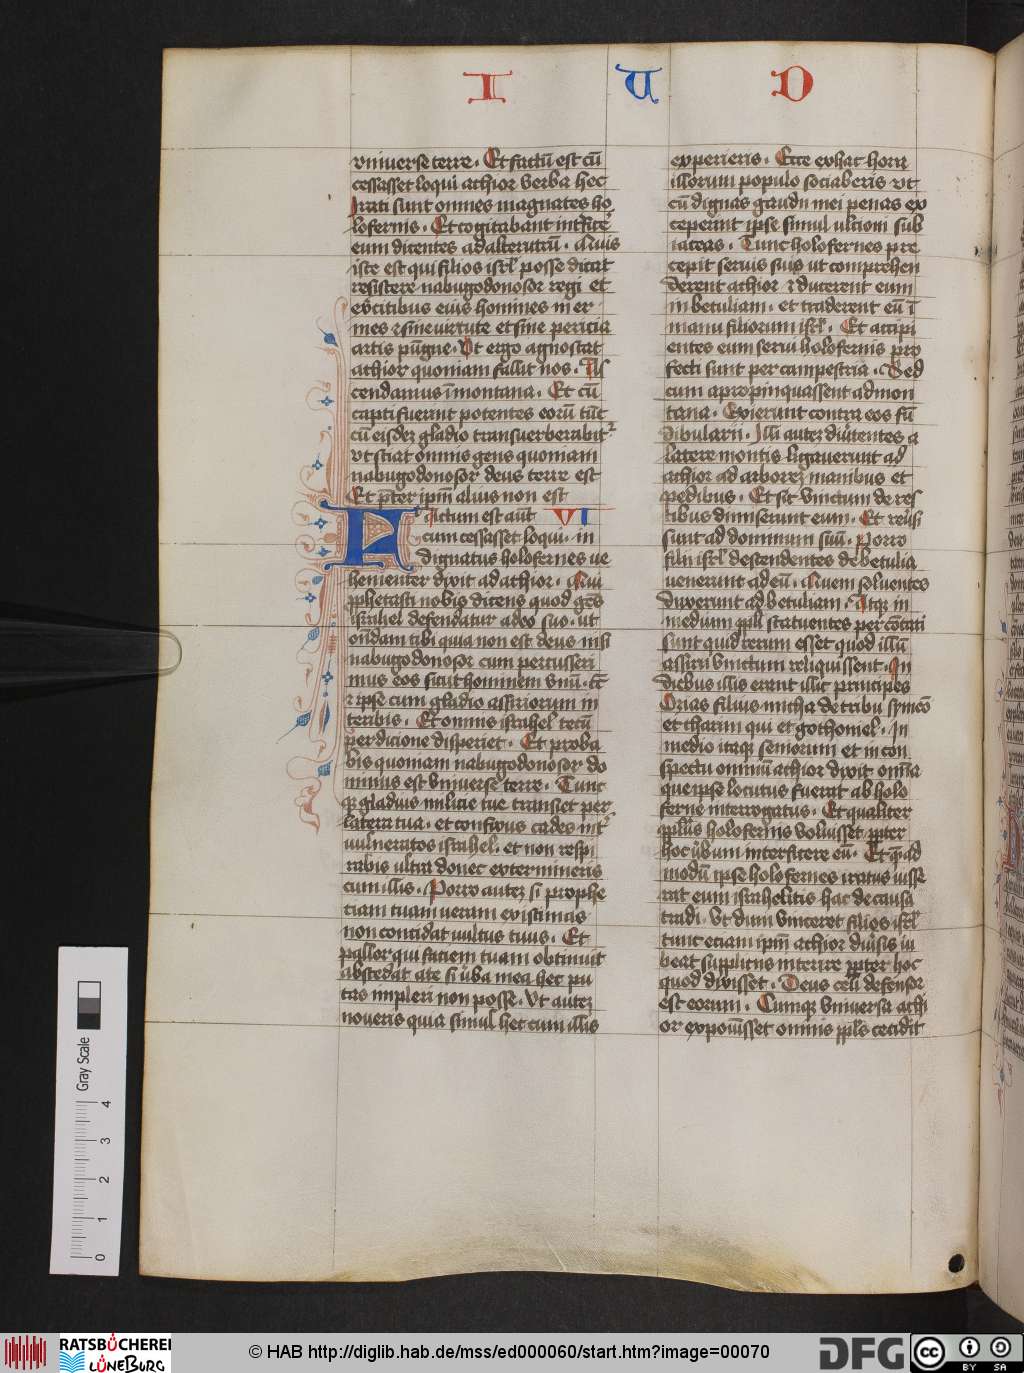 I U D
vniuerse terre. Et factū est cū
cessasset loqui athior verba hec
Irati sunt omnes magnates ho
lofernis. Et cogitabant intficē
eum dicentes ad alterutrū. Quis
iste est qui filios isrl̄ posse dicat
resistere nabugodonosor regi et
exc̄itibus euis homines iner
mes ⁊ sine uirtute et sine pericia
artis pūgne. Ut ergo agnoscat
athior quoniam fallit nos. As
cendamus ī montana. Et cū
capti fuerint potentes eorū tūc
cū eisdeꝫ gladio transuerberabit᷑
vt sciat omnis gens quoniam
nabugodonosor deus terre est
Et p̄ter ipm̄ alius non est
Factum est aūt VI
cum cessasset loqui. in
dignatus holofernes ue
hementer dixit ad athior. Qm̄
ꝓphetasti nobis dicens quod gēs
israhel defendatur a deo suo. ut
on̄dam tibi quia non est deus nisi
nabugodonosor cum percusseri
mus eos sicut hominem vnū. tc̄
⁊ ipse cum gladio assiriorum in
teribis. Et omnis israhel tecū
perdicione disperiet. Et proba
bis quoniam nabugodonosor do
minus est vniuerse terre. Tunc
qꝫ gladius milicie tue transiet per
latera tua. et confixus cades int᷑
uulneratos israhel. et non respi
rabis ultra donec extermineris
cum illis. Porro auteꝫ si prophe
ciam tuam ueram existimas
non concidat uultus tuus. Et
pallor qui faciem tuam obtinuit
abscedat a te si ūba mea hec pu
tas impleri non posse. Vt auteꝫ
noueris quia simul hec cum illis
experieris. Ecce ex hac hora
illorum populo sociaberis vt
cū dignas gaudii mei penas ex
ceperint ipse simul ulcioni sub
iaceas. Tunc holofernes pre
cepit seruis suis ut comprehen
derent athior ⁊ ducerent eum
in betuliam. et traderent eū ī
manu filiorum isrl̄. Et accipi
entes eum serui holofernis pro
fecti sunt per campestria. Sed
cum apropinquassent ad mon
tana. Exierunt contra eos fū
dibularii. Illi auteꝫ diūtentes a
latere montis ligauerunt ad
athior ad arboreꝫ manibus et
pedibus. Et sic vinctum de res
tibus dimiserunt eum. Et reūsi
sunt ad dominum suū. Porro
filii isrl̄ descendentes de betulia
uenerunt ad eū. Quem soluentes
duxerunt ad betuliam. Atqꝫ in
medium ppl̄i statuentes percōtati
sunt quid rerum esset quod illū
assirii vinctum reliquissent. In
diebus illis erant illic principes
Ozias filius micha de tribu symeō
et charim qui et gothoniel. In
medio itaqꝫ seniorum et in con
spectu omniū athior dixit om̄ia
que ipse locutus fuerat ab holo
ferne interrogatus. Et qualiter
ppl̄us holofernis voluisset ꝓpter
hoc ūbum interficere eū. Et q̄mad
modū ipse holofernes iratus iusse
rat eum israhelitis hac de causa
tradi. Vt dum vinceret filios isrl̄
tunc eciam ipm̄ athior diūsis iu
beat suppliciis interire ꝓpter hoc
quod dixisset. Deus celi defensor
est eorum. Cumqꝫ vniuersa athi
or exposuisset omnis ppl̄s cecidit
Gray Scale
4
3
2
1
0
RATSBÜCHEREI LÜNEBURG
© HAB http://diglib.hab.de/mss/ed000060/start.htm?image=00070
DFG
cc BY SA